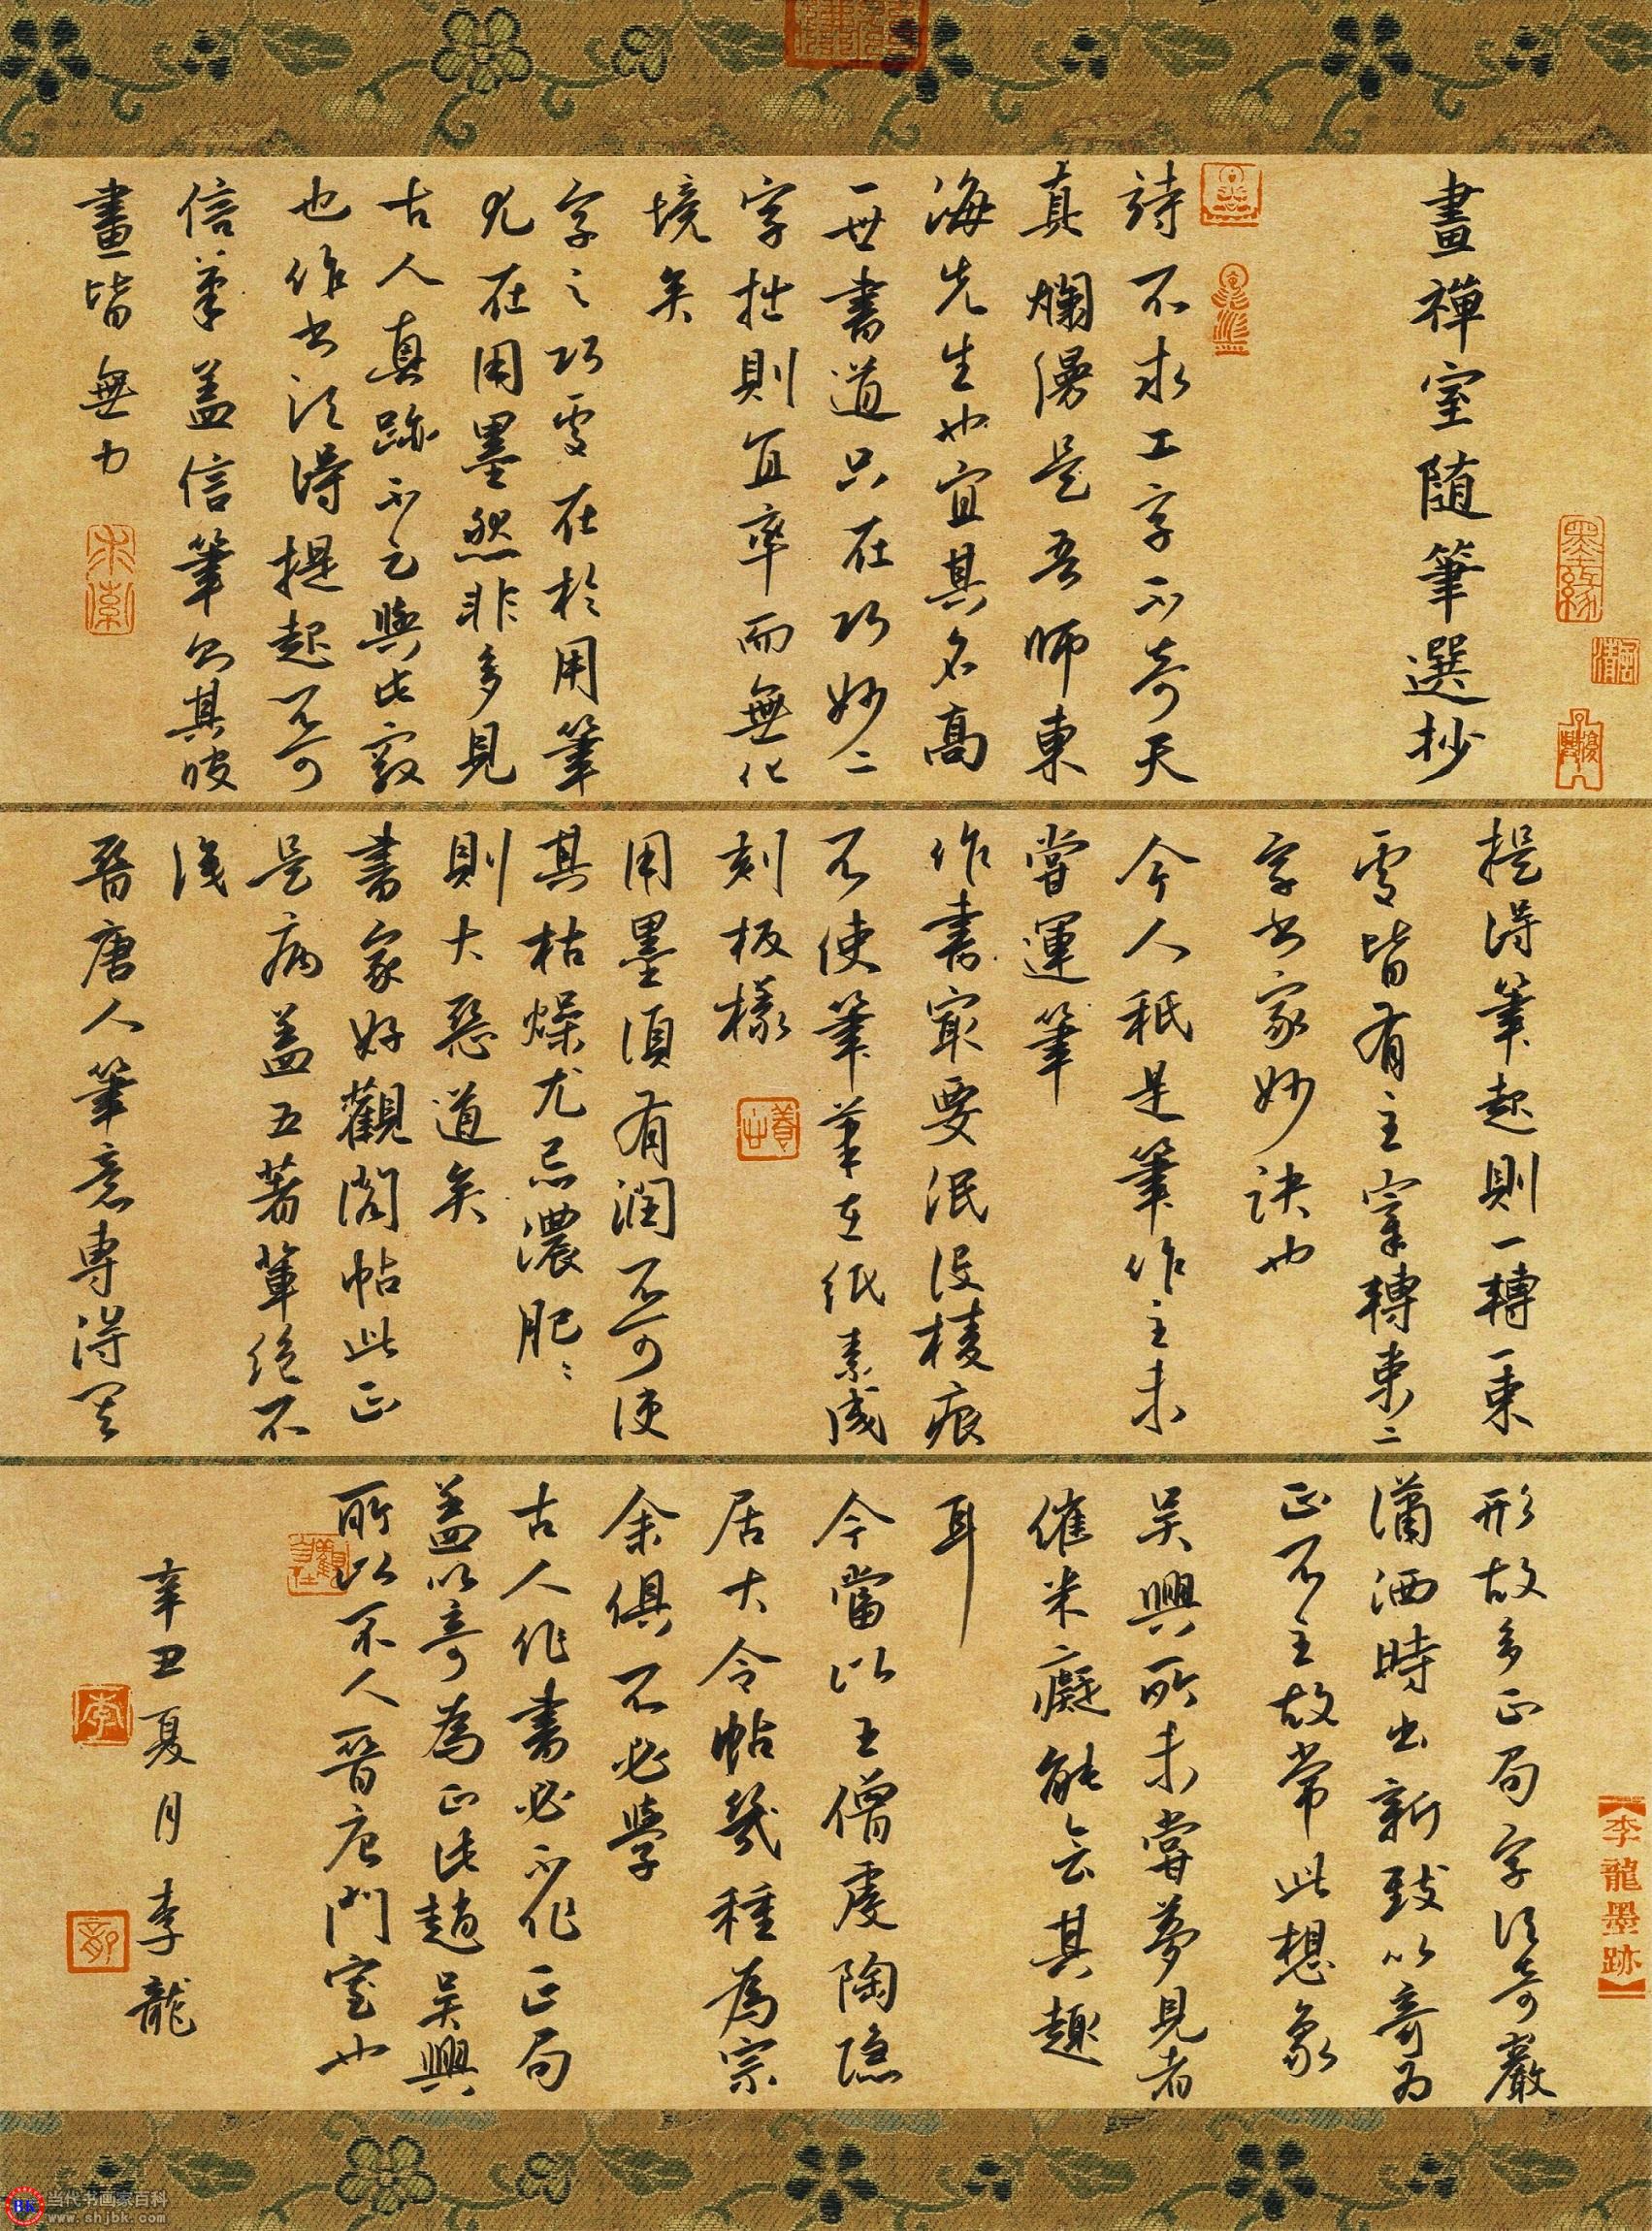 畫禪室隨筆選抄
詩不求工字不奇天
真爛漫是吾師東
海先生也宜其名高
一世書道只在巧妙二
字拙則直率而無化
境矣
字之巧處在於用筆
尤在用墨然非多見
古人真跡不足與語此竅
也作書須得提起不可
信筆蓋信筆則其波
畫皆無力
提得筆起則一轉一束
處皆有主宰轉束二
字書家妙訣也
今人秪是筆作主未
嘗運筆
作書最要泯沒棱痕
不使筆筆在紙素成
刻板樣
用墨須有潤不可使
其枯燥尤忌濃肥肥
則大惡道矣
書家好觀閣帖此正
是病蓋王著輩絕不
識
晉唐人筆意專得其
形故多正局字須奇
瀟洒時出新致以奇為
正不主故常此
吳興所未嘗夢見者
惟米癡能會其趣
耳
今當以王僧虔陶隱
居大令帖幾種為宗
余俱不必學
古人作書必不作正局
蓋以奇為正此趙吳興
所以不入晉唐門室也
辛丑夏月李龍
【李龍墨跡】
當代书画家百科
www.shjbk.com